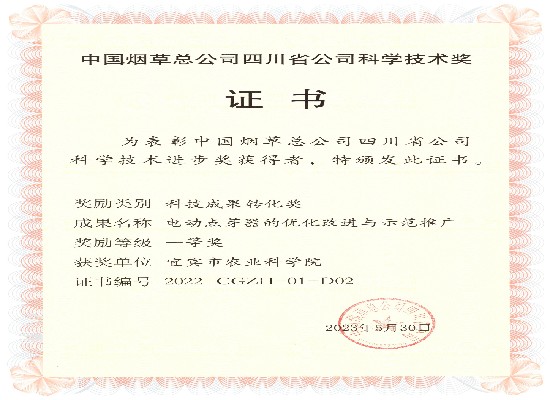 中国烟草总公司四川省公司科学技术奖
证书
为表彰中国烟草总公司四川省公司
科学技术进步奖获得者，特颁发此证书。
奖励类别 科技成果转化奖
成果名称 电动点芽器的优化改进与示范推广
奖励等级 一等奖
获奖单位 宜宾市农业科学院
证书编号 2022-CGZH-01-D02
2023年5月30日